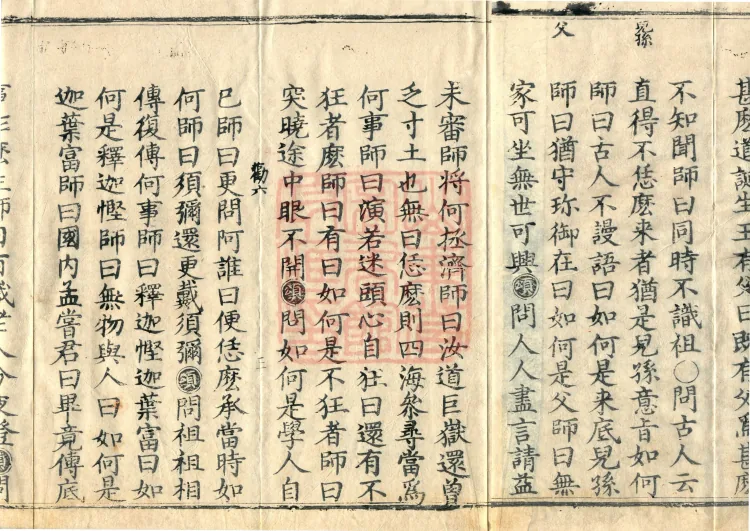 不知聞師曰同時不識祖〇問古人云
孫
直得不恁麽来者猶是兒孫意旨如何
師曰古人不謾語曰如何是来底兒孫
父
師曰猶守珎御在曰如何是父師曰無
家可坐無世可興須問人人盡言請益
未審師將何拯濟師曰汝道巨嶽還曾
乏寸土也無曰恁麽則四海叅尋當爲
何事師曰演若迷頭心自狂曰還有不
狂者麽師曰有曰如何是不狂者師曰
突曉途中眼不開須問如何是學人自
勸六
己師曰更問阿誰曰便恁麽承當時如
何師曰須彌還更戴須彌須問祖祖相
傳復傳何事師曰釋迦慳迦葉富曰如
何是釋迦慳師曰無物與人曰如何是
迦葉富師曰國内孟嘗君曰畢竟傳底